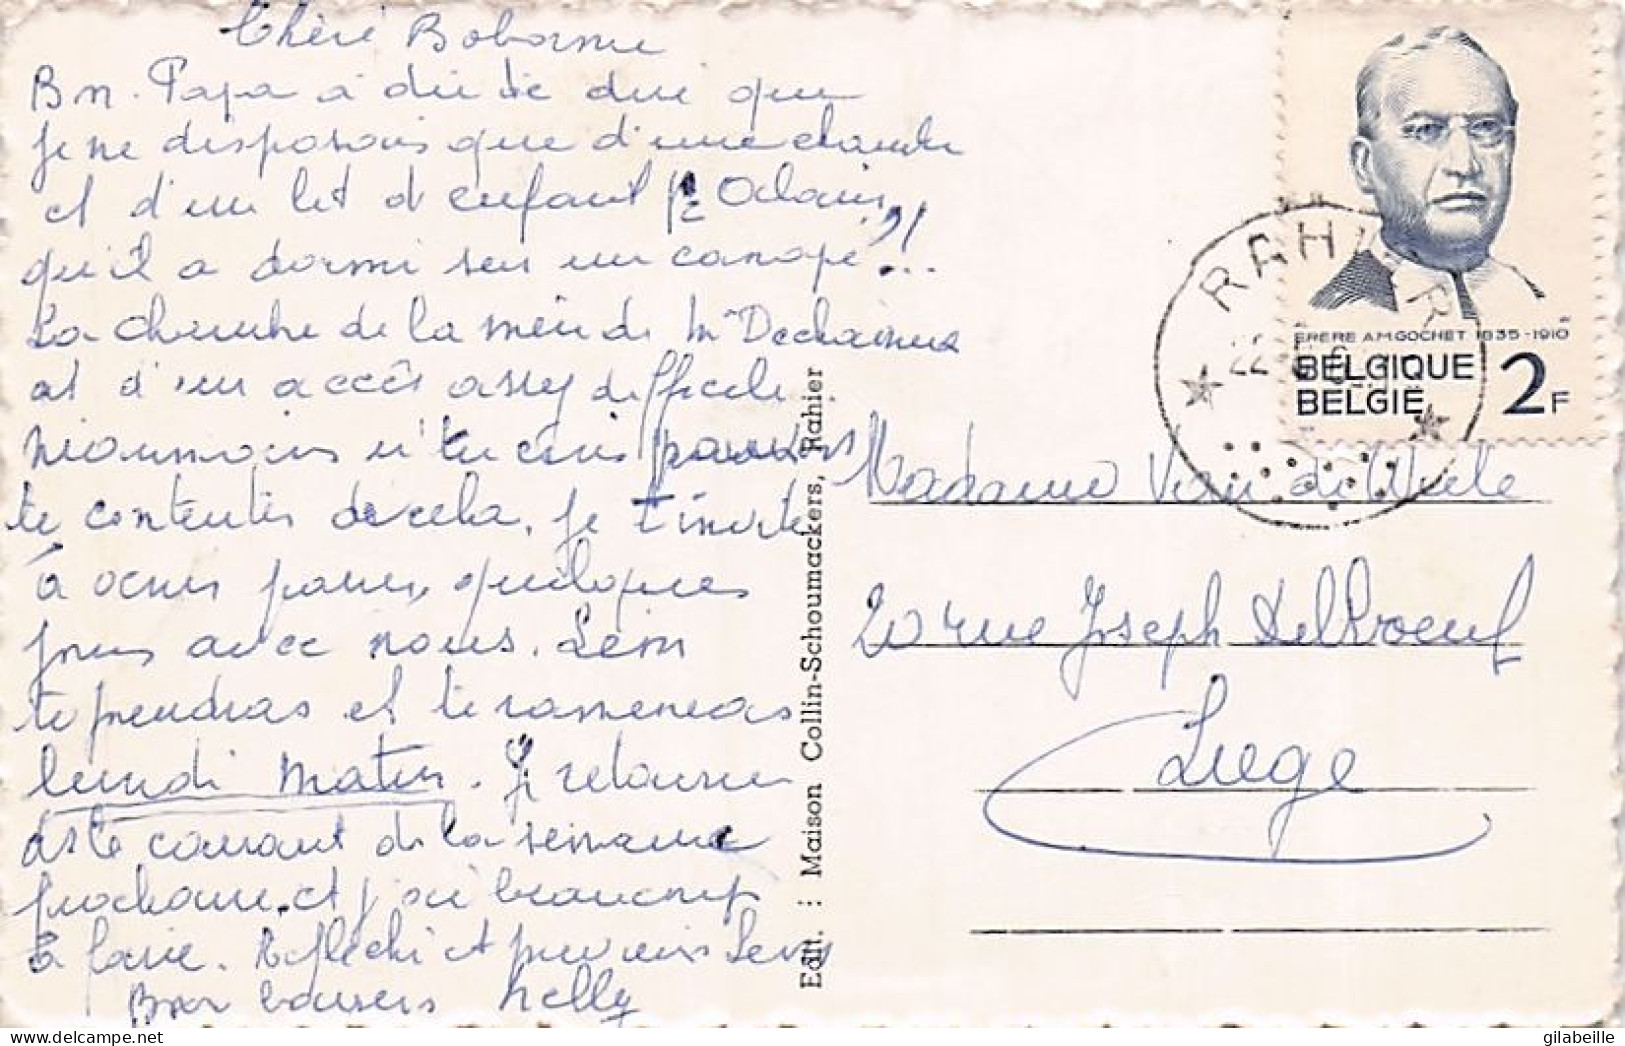 Chère Bobonne
Bn. Papa a dû te dire que
je ne disposais que d'une chambre
et d'un lit d'enfant pr Alain,
qu'il a dormi sur un canapé!!...
La chambre de la mère de Mr
est d'un accès assez difficile.
Néanmoins si tu crois pouvoir
te contenter de cela, je t'invite
à venir passer quelques
jours avec nous. Léon
te prendras et te ramèneras
lundi matin. Je retourne
ds le courant de la semaine
prochaine, et j'ai beaucoup
à faire. Réfléchi et préviens Léon
Bons baisers Nelly
Edit. : Maison Collin-Schoumackers, Rahier
RAHIER
22
FRERE A.M. GOCHET 1835-1910
BELGIQUE
BELGIË
2F
Madame Van de Wiele
20 rue Joseph Delboeuf
Liège
delcampe.net
gilabeille